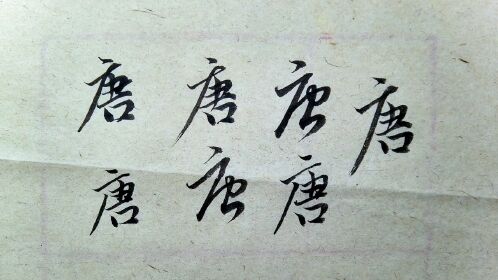 唐唐唐唐
唐唐唐